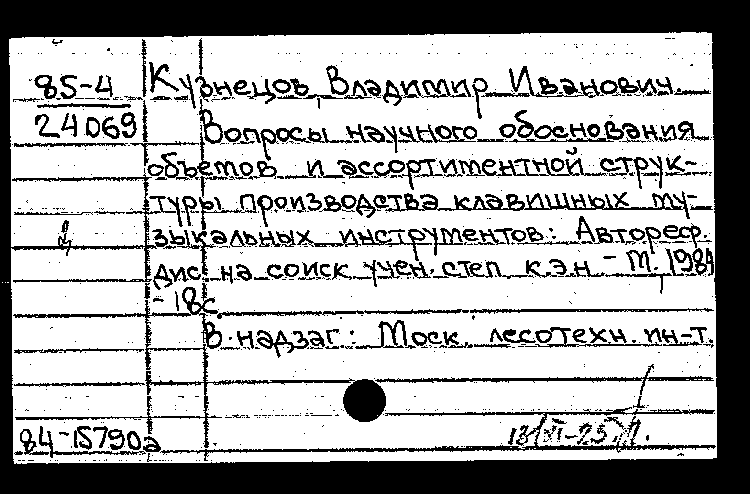 85-4
24069
Кузнецов, Владимир Иванович.
Вопросы научного обоснования
объемов и ассортиментной струк-
туры производства клавишных му-
зыкальных инструментов: Автореф.
дис. на соиск учен. степ к.э.н - М., 1984
- 18с.
В надзаг: Моск. лесотехн. ин-т.
84-15790а